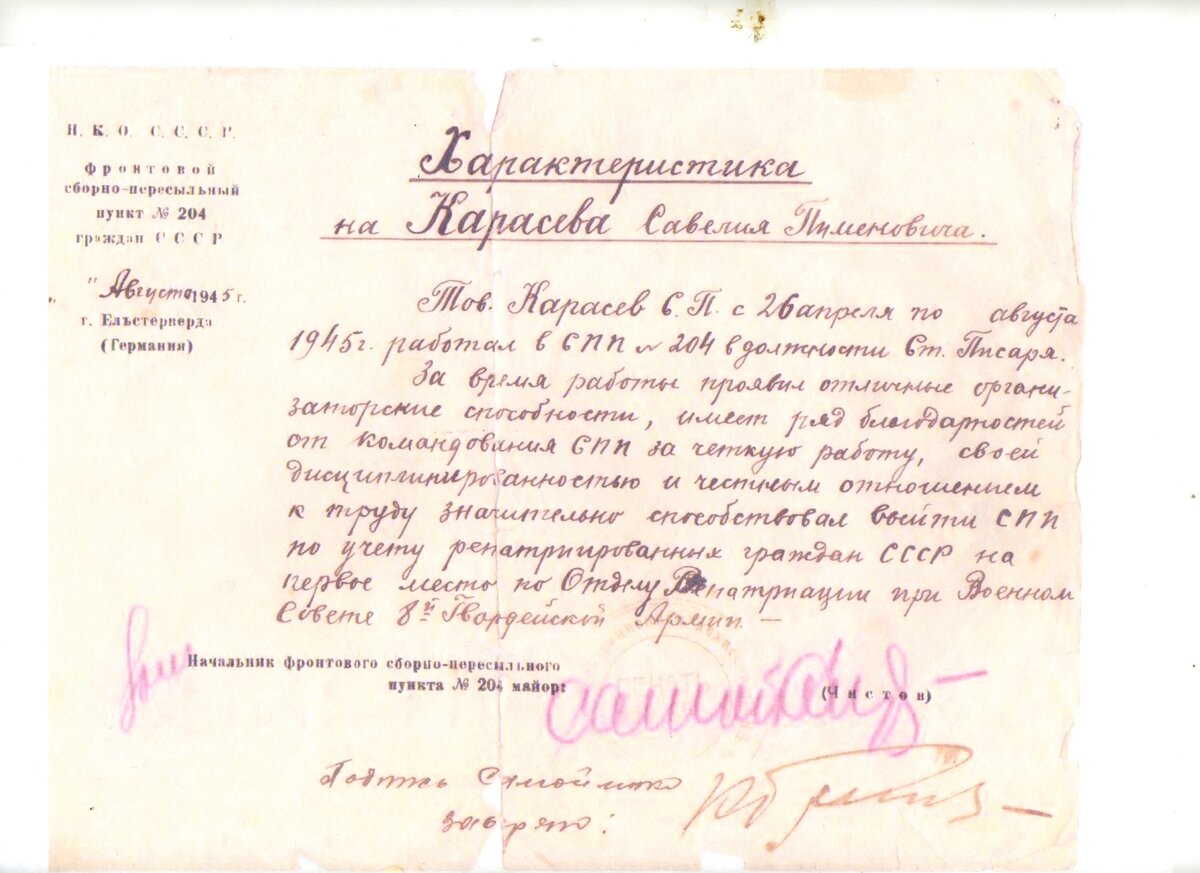 Н. К. О. С. С. С. Р.
фронтовой
сборно-пересыльный
пункт № 204
граждан СССР
" Августа 1945 г.
г. Ельстерверда
(Германия)
Характеристика
на Карасева Савелия Пименовича.
Тов. Карасев С. П. с 26 апреля по августа
1945 г. работал в СПП № 204 в должности Ст. Писаря.
За время работы проявил отличные органи-
заторские способности, имеет ряд благодарностей
от командования СПП за четкую работу, своей
дисциплинированностью и честным отношением
к труду значительно способствовал выйти СПП
по учету репатриированных граждан СССР на
первое место по Отделу Репатриации при Военном
Совете 8й Гвардейской Армии. —
Начальник фронтового сборно-пересыльного
пункта № 204 майор:
(Чистов)
Подпись Самойленко
заверяю: